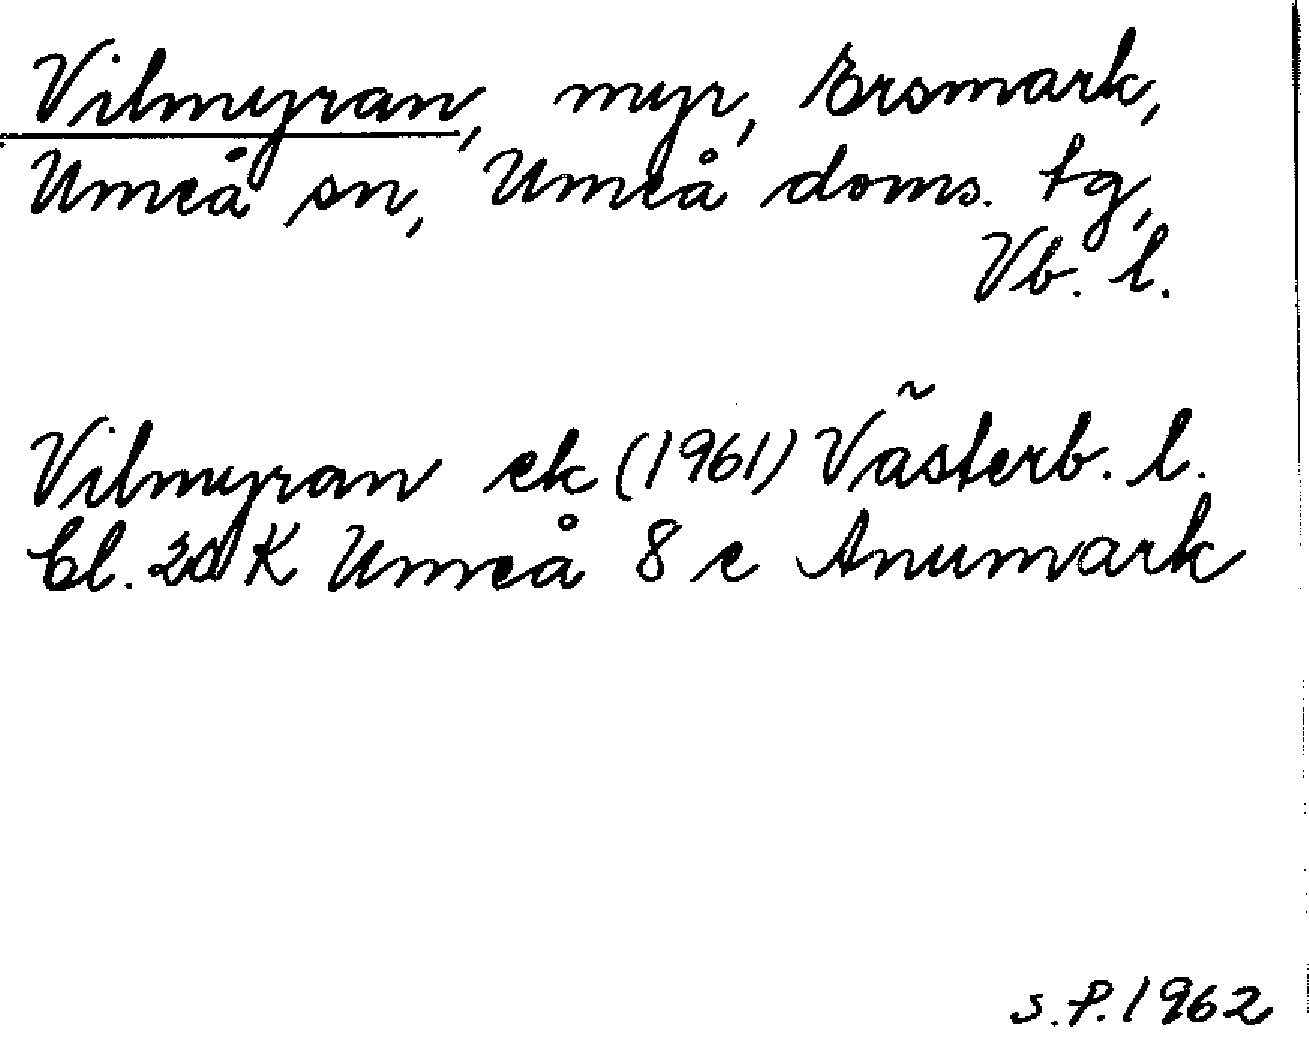 Vilmyran, myr, Ersmark,
Umeå sn, Umeå doms. tg,
Vb. l.
Vilmyran ek (1961) Västerb. l.
bl. 20 K Umeå 8 e Anumark
S.P. 1962